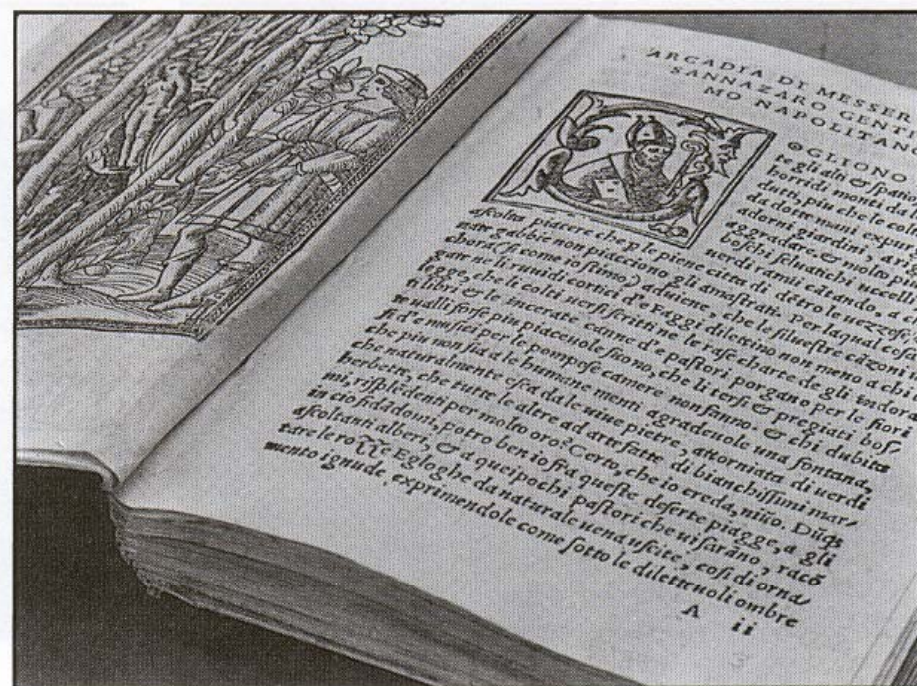 ARCADIA DI MESSER
SANNAZARO GENTI
MO NAPOLITANO
OGLIONO
te gli alti & spatio
horridi monti da
dutti, piu che le colt
da dotte mani expur
adorni giardini, a
aggradare. & molto p
boschi seluatichi uccelli
uerdi rami cātando, a
ascolta piacere, che p le piene citta di dētro le uezzose
nate gabbie non piacciono gli amaestrati. Per la qual cosa
chora (si come io stimo) aduiene, che le siluestre cāzoni
gate ne li ruuidi cortici d'e faggi dilettino non meno a chi
legge, che li colti uersi scritti ne le rase charte de gli indora
ti libri. & le incerate canne d'e pastori porgano per le fiori
te ualli forse piu piaceuole suono, che li tersi & pregiati bos/
si d'e musici per le pompose camere non fanno. & chi dubita
che piu non sia a le humane menti agradeuole una fontana,
che naturalmente esca da le uiue pietre, attorniata di uerdi
herbette, che tutte le altre ad arte fatte di bianchissimi mar/
mi, risplēdenti per molto oro? Certo, che io creda, niūo. Dūq;
in cio fidādomi, potro ben io fra queste deserte piagge, a gli
ascoltanti alberi, & a quei pochi pastori che ui sarāno, racō
tare le ro Egloghe da naturale uena uscite, cosi di orna/
mento ignude, exprimendole come sotto le diletteuoli ombre
A ii
3